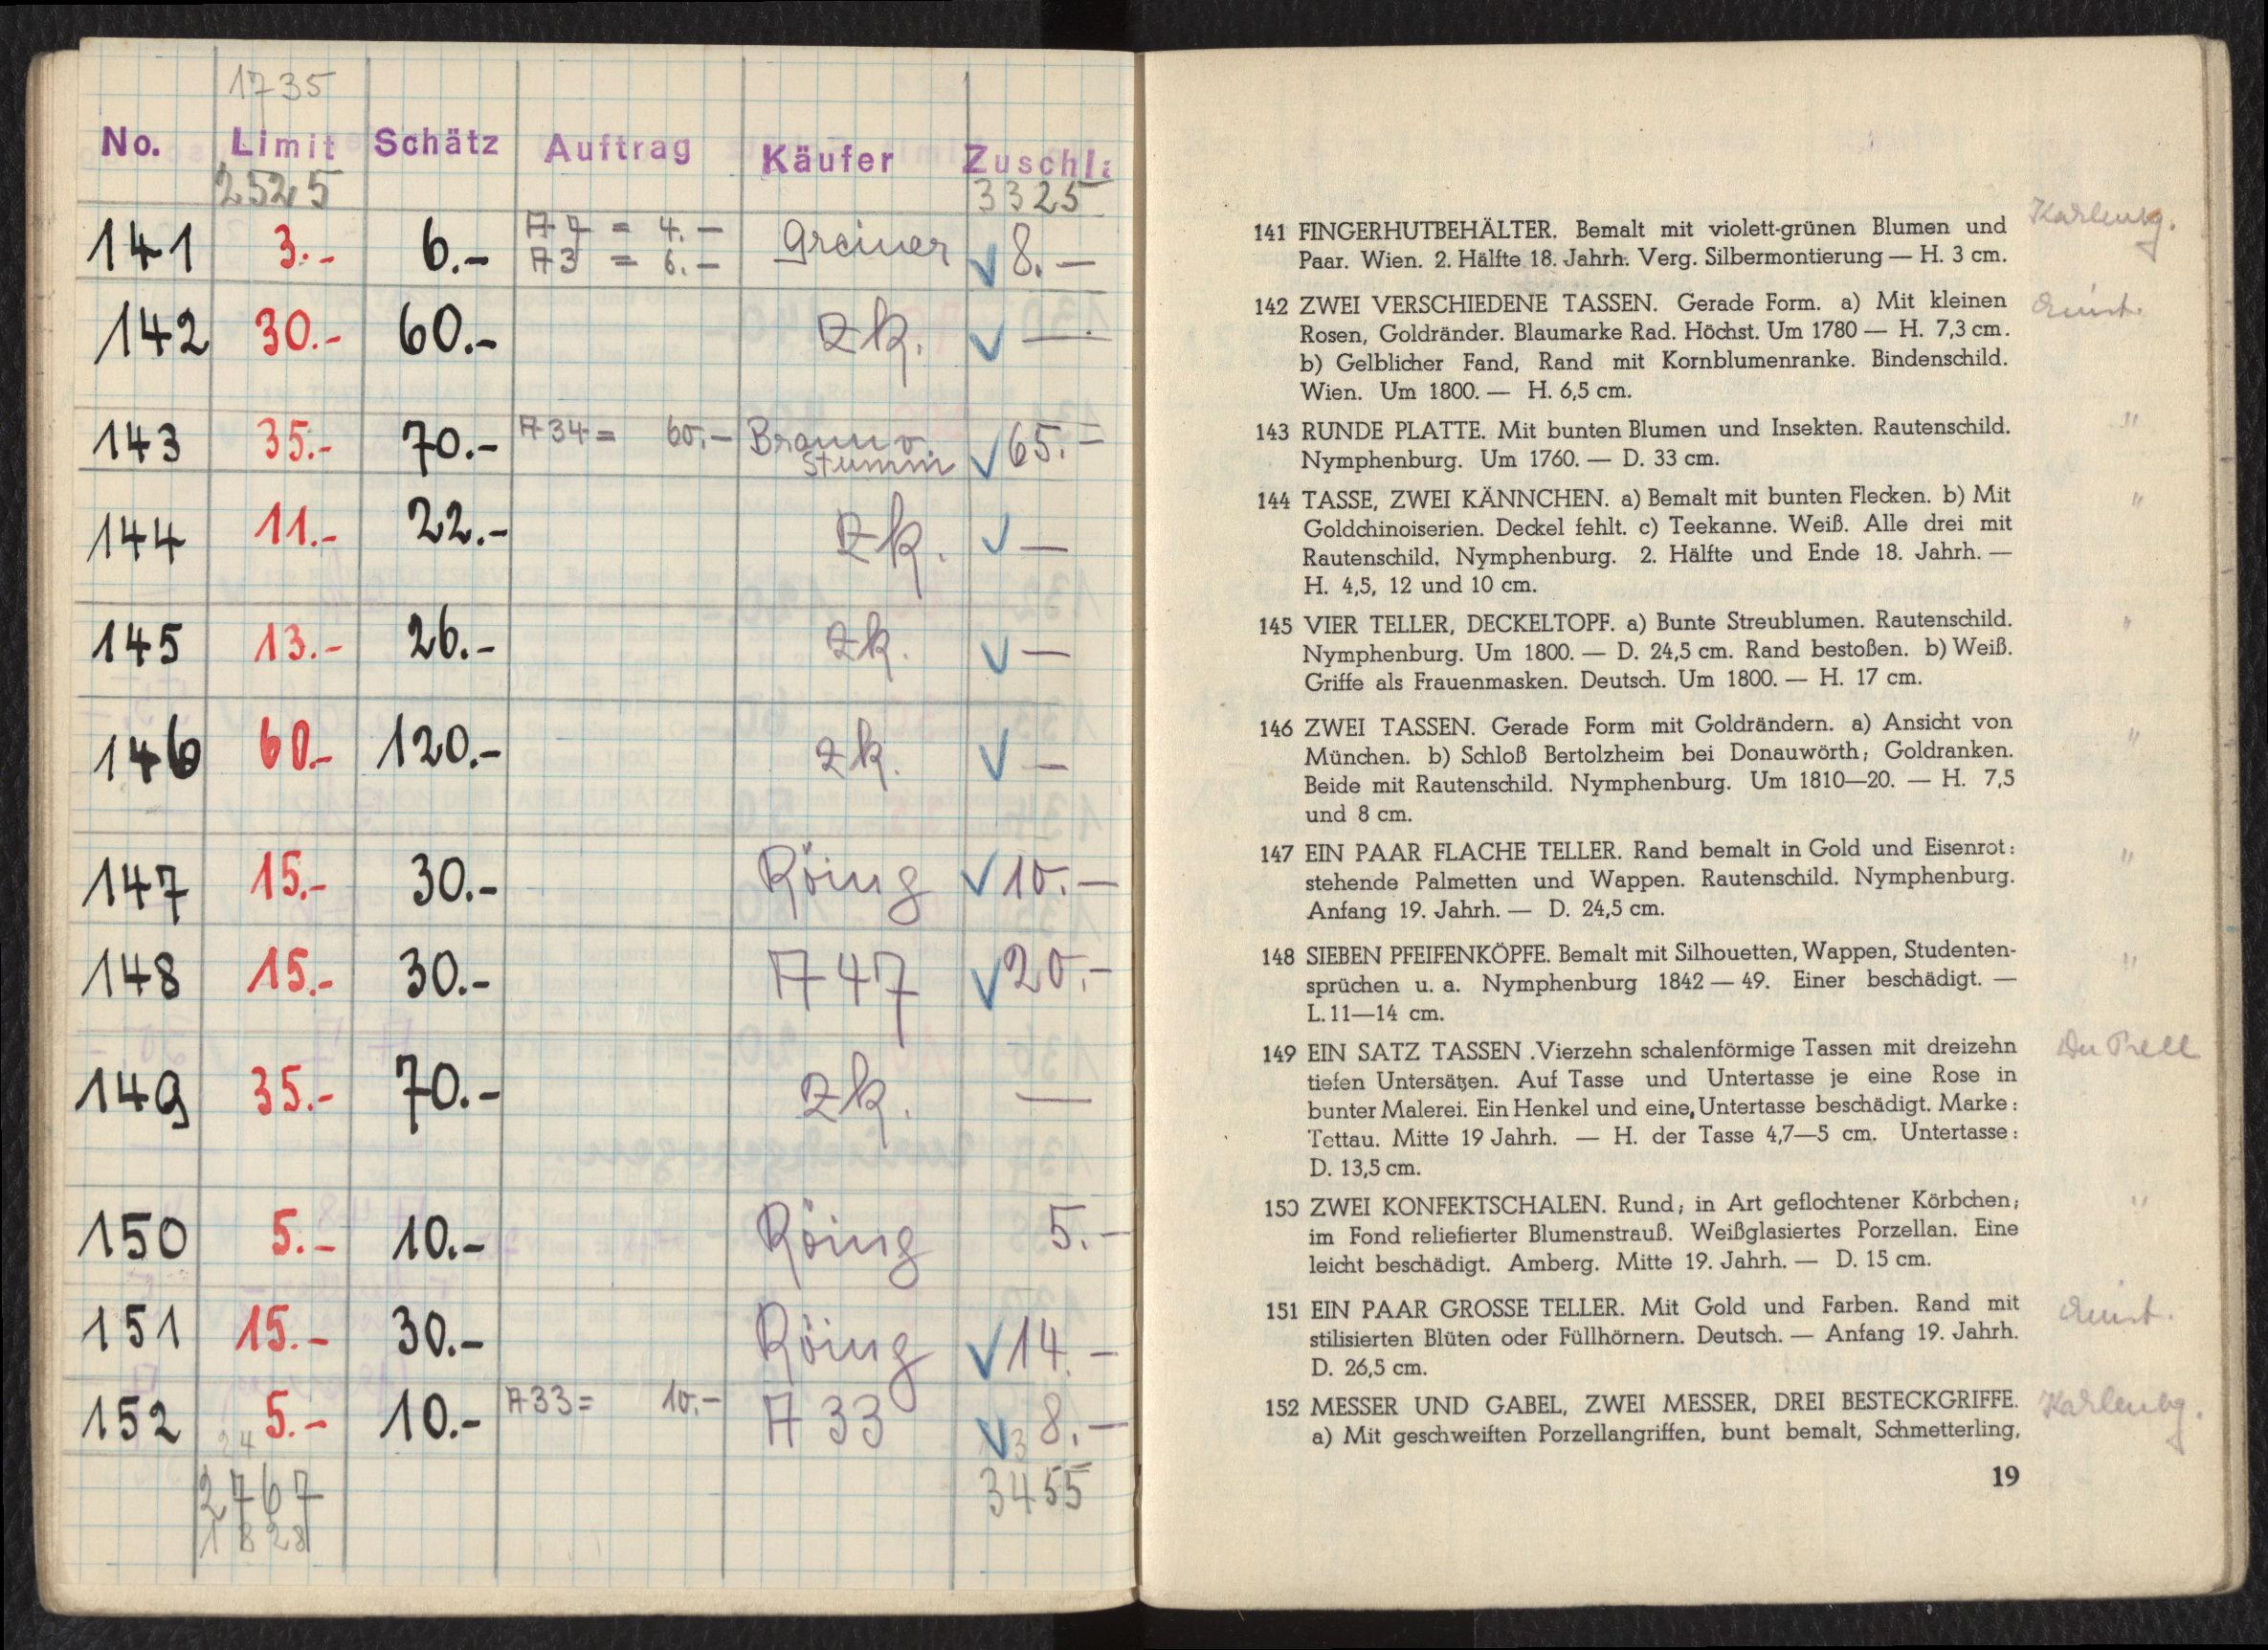 1735
No. Limit Schätz Auftrag Käufer Zuschl:
2525 3325
A 7 = 4.—
141 3.- 6.- A 3 = 6.— Greiner √ 8.—
142 30.- 60.- zk. √ —
143 35.- 70.- A 34 = 60.— Braun v. Stumm √ 65.—
144 11.- 22.- zk. √ —
145 13.- 26.- zk. √ —
146 60.- 120.- zk. √ —
147 15.- 30.- Röing √ 10.—
148 15.- 30.- A 47 √ 20.—
149 35.- 70.- zk. —
150 5.- 10.- Röing 5.—
151 15.- 30.- Röing √ 14.—
152 5.- 10.- A 33 = 10.— A 33 √ 8.—
24 13
2767 3455
1828
141 FINGERHUTBEHÄLTER. Bemalt mit violett-grünen Blumen und
Paar. Wien. 2. Hälfte 18. Jahrh. Verg. Silbermontierung — H. 3 cm.
142 ZWEI VERSCHIEDENE TASSEN. Gerade Form. a) Mit kleinen
Rosen, Goldränder. Blaumarke Rad. Höchst. Um 1780 — H. 7,3 cm.
b) Gelblicher Fand, Rand mit Kornblumenranke. Bindenschild.
Wien. Um 1800. — H. 6,5 cm.
143 RUNDE PLATTE. Mit bunten Blumen und Insekten. Rautenschild. "
Nymphenburg. Um 1760. — D. 33 cm.
144 TASSE, ZWEI KÄNNCHEN. a) Bemalt mit bunten Flecken. b) Mit "
Goldchinoiserien. Deckel fehlt. c) Teekanne. Weiß. Alle drei mit
Rautenschild, Nymphenburg. 2. Hälfte und Ende 18. Jahrh. —
H. 4,5, 12 und 10 cm.
145 VIER TELLER, DECKELTOPF. a) Bunte Streublumen. Rautenschild. "
Nymphenburg. Um 1800. — D. 24,5 cm. Rand bestoßen. b) Weiß.
Griffe als Frauenmasken. Deutsch. Um 1800. — H. 17 cm.
146 ZWEI TASSEN. Gerade Form mit Goldrändern. a) Ansicht von "
München. b) Schloß Bertolzheim bei Donauwörth; Goldranken.
Beide mit Rautenschild. Nymphenburg. Um 1810—20. — H. 7,5
und 8 cm.
147 EIN PAAR FLACHE TELLER. Rand bemalt in Gold und Eisenrot: "
stehende Palmetten und Wappen. Rautenschild. Nymphenburg.
Anfang 19. Jahrh. — D. 24,5 cm.
148 SIEBEN PFEIFENKÖPFE. Bemalt mit Silhouetten, Wappen, Studenten- "
sprüchen u. a. Nymphenburg 1842 — 49. Einer beschädigt. —
L. 11—14 cm.
149 EIN SATZ TASSEN .Vierzehn schalenförmige Tassen mit dreizehn Du Prell
tiefen Untersätzen. Auf Tasse und Untertasse je eine Rose in
bunter Malerei. Ein Henkel und eine, Untertasse beschädigt. Marke:
Tettau. Mitte 19 Jahrh. — H. der Tasse 4,7—5 cm. Untertasse:
D. 13,5 cm.
150 ZWEI KONFEKTSCHALEN. Rund; in Art geflochtener Körbchen; "
im Fond reliefierter Blumenstrauß. Weißglasiertes Porzellan. Eine
leicht beschädigt. Amberg. Mitte 19. Jahrh. — D. 15 cm.
151 EIN PAAR GROSSE TELLER. Mit Gold und Farben. Rand mit
stilisierten Blüten oder Füllhörnern. Deutsch. — Anfang 19. Jahrh.
D. 26,5 cm.
152 MESSER UND GABEL, ZWEI MESSER, DREI BESTECKGRIFFE.
a) Mit geschweiften Porzellangriffen, bunt bemalt, Schmetterling,
19